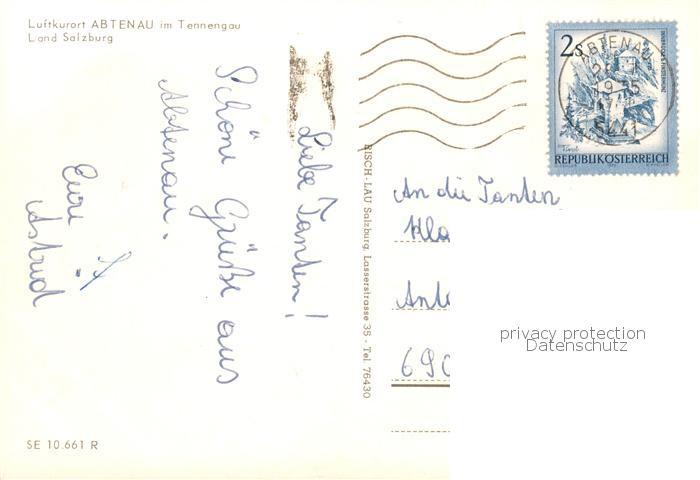 Luftkurort ABTENAU im Tennengau
Land Salzburg
Liebe Tanten!
Schöne Grüße aus
Abtenau.
Eure
Astrid
SE 10.661 R
RISCH-LAU Salzburg, Lasserstrasse 35 - Tel. 76430
2s
REPUBLIK ÖSTERREICH
ABTENAU
5441
An die Tanten
Kla
Ant
690
privacy protection
Datenschutz